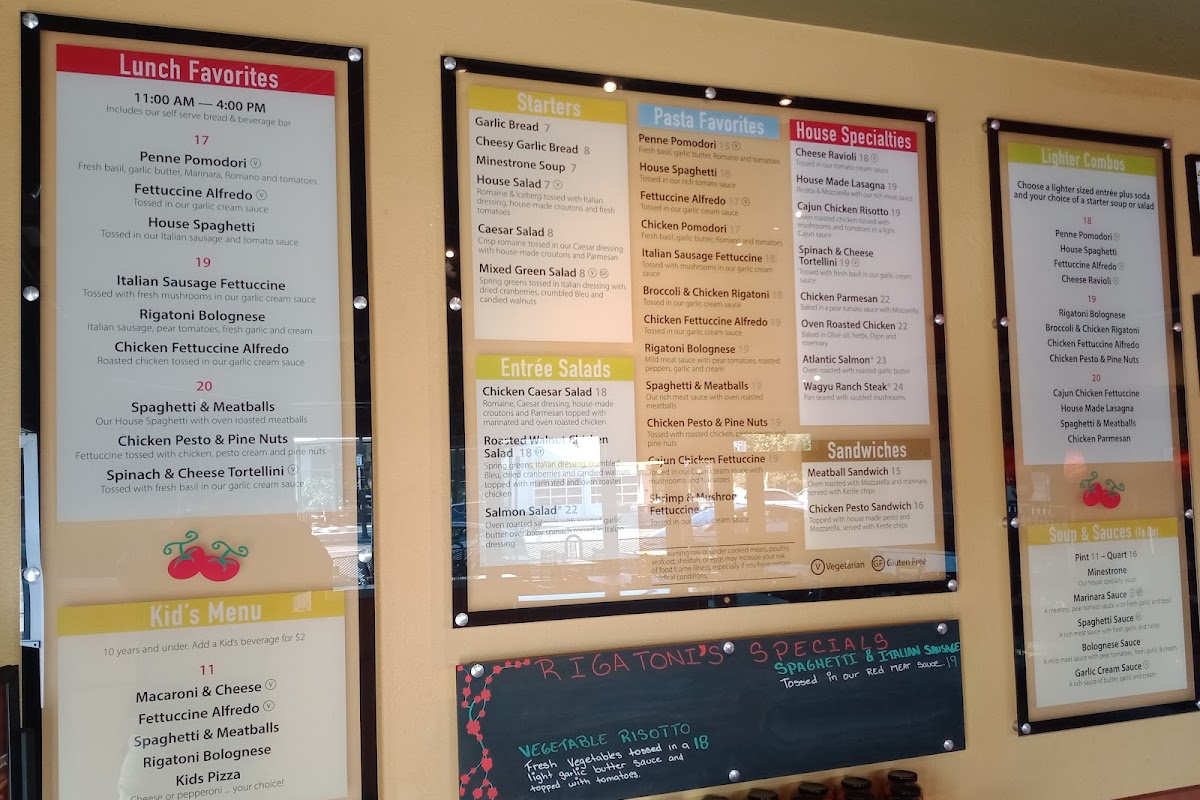 Lunch Favorites
11:00 AM — 4:00 PM
Includes our self serve bread & beverage bar
17
Penne Pomodori V
Fresh basil, garlic butter, Marinara, Romano and tomatoes
Fettuccine Alfredo V
Tossed in our garlic cream sauce
House Spaghetti
Tossed in our Italian sausage and tomato sauce
19
Italian Sausage Fettuccine
Tossed with fresh mushrooms in our garlic cream sauce
Rigatoni Bolognese
Italian sausage, pear tomatoes, fresh garlic and cream
Chicken Fettuccine Alfredo
Roasted chicken tossed in our garlic cream sauce
20
Spaghetti & Meatballs
Our House Spaghetti with oven roasted meatballs
Chicken Pesto & Pine Nuts
Fettuccine tossed with chicken, pesto cream and pine nuts
Spinach & Cheese Tortellini V
Tossed with fresh basil in our garlic cream sauce
Kid's Menu
10 years and under. Add a Kid's beverage for $2
11
Macaroni & Cheese V
Fettuccine Alfredo V
Spaghetti & Meatballs
Rigatoni Bolognese
Kids Pizza
Cheese or pepperoni ... your choice!
Starters
Garlic Bread 7
Cheesy Garlic Bread 8
Minestrone Soup 7
House Salad 7 V
Romaine & Iceberg tossed with Italian
dressing, house-made croutons and fresh
tomatoes
Caesar Salad 8
Crisp romaine tossed in our Caesar dressing
with house-made croutons and Parmesan
Mixed Green Salad 8 V GF
Spring greens tossed in Italian dressing with
dried cranberries, crumbled Bleu and
candied walnuts
Entrée Salads
Chicken Caesar Salad 18
Romaine, Caesar dressing, house-made
croutons and Parmesan topped with
marinated and oven roasted chicken
Roasted Walnut Chicken
Salad 18 GF
Spring greens, Italian dressing, crumbled
Bleu, dried cranberries and candied walnuts
topped with marinated and oven roasted
chicken
Salmon Salad* 22
Oven roasted salmon with roasted garlic
butter over baby spinach tossed in Italian
dressing
Pasta Favorites
Penne Pomodori 15 V
Fresh basil, garlic butter, Romano and tomatoes
House Spaghetti 16
Tossed in our rich tomato sauce
Fettuccine Alfredo 17 V
Tossed in our garlic cream sauce
Chicken Pomodori 17
Fresh basil, garlic butter, Romano and tomatoes
Italian Sausage Fettuccine 18
Tossed with mushrooms in our garlic cream
sauce
Broccoli & Chicken Rigatoni 18
Tossed in our garlic cream sauce
Chicken Fettuccine Alfredo 19
Tossed in our garlic cream sauce
Rigatoni Bolognese 19
Mild meat sauce with pear tomatoes, roasted
peppers, garlic and cream
Spaghetti & Meatballs 19
Our rich meat sauce with oven roasted
meatballs
Chicken Pesto & Pine Nuts 19
Tossed with roasted chicken, pesto cream and
pine nuts
Cajun Chicken Fettuccine 19
Tossed in our Cajun cream sauce with
mushrooms and tomatoes
Shrimp & Mushroom
Fettuccine
Tossed in our garlic cream sauce
warning raw or under cooked meats, poultry,
seafood, shellfish, or eggs may increase your risk
of food borne illness, especially if you have certain
medical conditions.
House Specialties
Cheese Ravioli 18 V
Tossed in our tomato cream sauce
House Made Lasagna 19
Ricotta & Mozzarella with our rich meat sauce
Cajun Chicken Risotto 19
Oven roasted chicken tossed with
mushrooms and tomatoes in a light
Cajun sauce
Spinach & Cheese
Tortellini 19 V
Tossed with fresh basil in our garlic cream
sauce
Chicken Parmesan 22
Baked in a pear tomato sauce with Mozzarella
Oven Roasted Chicken 22
Baked in Olive oil, herbs, Dijon and
rosemary
Atlantic Salmon* 23
Oven roasted with roasted garlic butter
Wagyu Ranch Steak* 24
Pan seared with sautéed mushrooms
Sandwiches
Meatball Sandwich 15
Oven roasted with Mozzarella and marinara,
served with Kettle chips
Chicken Pesto Sandwich 16
Topped with house made pesto and
Mozzarella, served with Kettle chips
V Vegetarian GF Gluten Free
RIGATONI'S SPECIALS
SPAGHETTI & ITALIAN SAUSAGE
Tossed in our RED MEAT sauce 19
VEGETABLE RISOTTO
Fresh Vegetables tossed in a 18
light garlic butter sauce and
topped with tomatoes.
Lighter Combos
Choose a lighter sized entrée plus soda
and your choice of a starter soup or salad
18
Penne Pomodori V
House Spaghetti
Fettuccine Alfredo V
Cheese Ravioli V
19
Rigatoni Bolognese
Broccoli & Chicken Rigatoni
Chicken Fettuccine Alfredo
Chicken Pesto & Pine Nuts
20
Cajun Chicken Fettuccine
House Made Lasagna
Spaghetti & Meatballs
Chicken Parmesan
Soup & Sauces (To Go)
Pint 11 – Quart 16
Minestrone
Our house specialty soup
Marinara Sauce V GF
A meatless pear tomato sauce with fresh garlic and basil
Spaghetti Sauce GF
A rich meat sauce with fresh garlic and herbs
Bolognese Sauce
A mild meat sauce with pear tomatoes, fresh garlic & cream
Garlic Cream Sauce V
A rich sauce of butter, garlic and cream